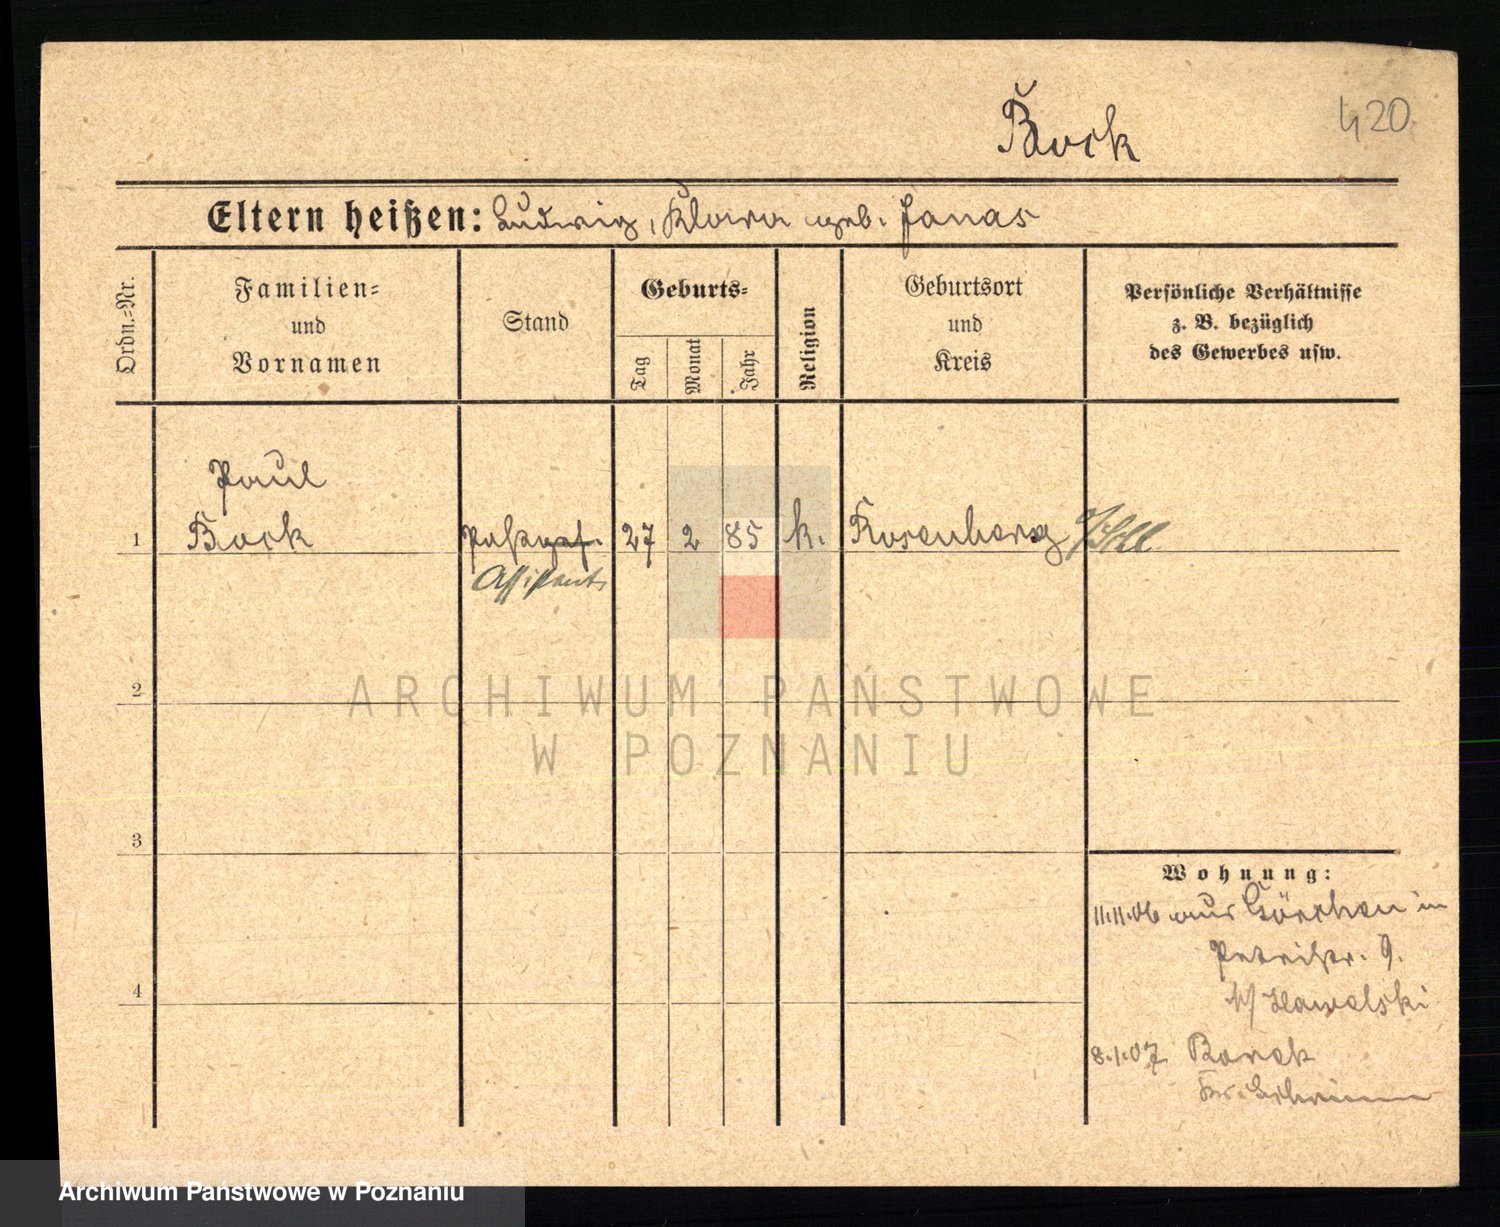 Bock
420
Eltern heißen: Ludwig, Klara geb. Janas
Ordn.-Nr.
Familien-
und
Vornamen
Stand
Geburts-
Tag
Monat
Jahr
Religion
Geburtsort
und
Kreis
Persönliche Verhältnisse
z. B. bezüglich
des Gewerbes usw.
Paul
1 Bock Postgeh. 27 2 85 k. Rosenberg
Assistent
2
ARCHIWUM PAŃSTWOWE
W POZNANIU
3
Wohnung:
11.11.06 aus Görchen in
Petristr. 9.
b/ Nawalski
4
8.1.07 Borek
Archiwum Państwowe w Poznaniu